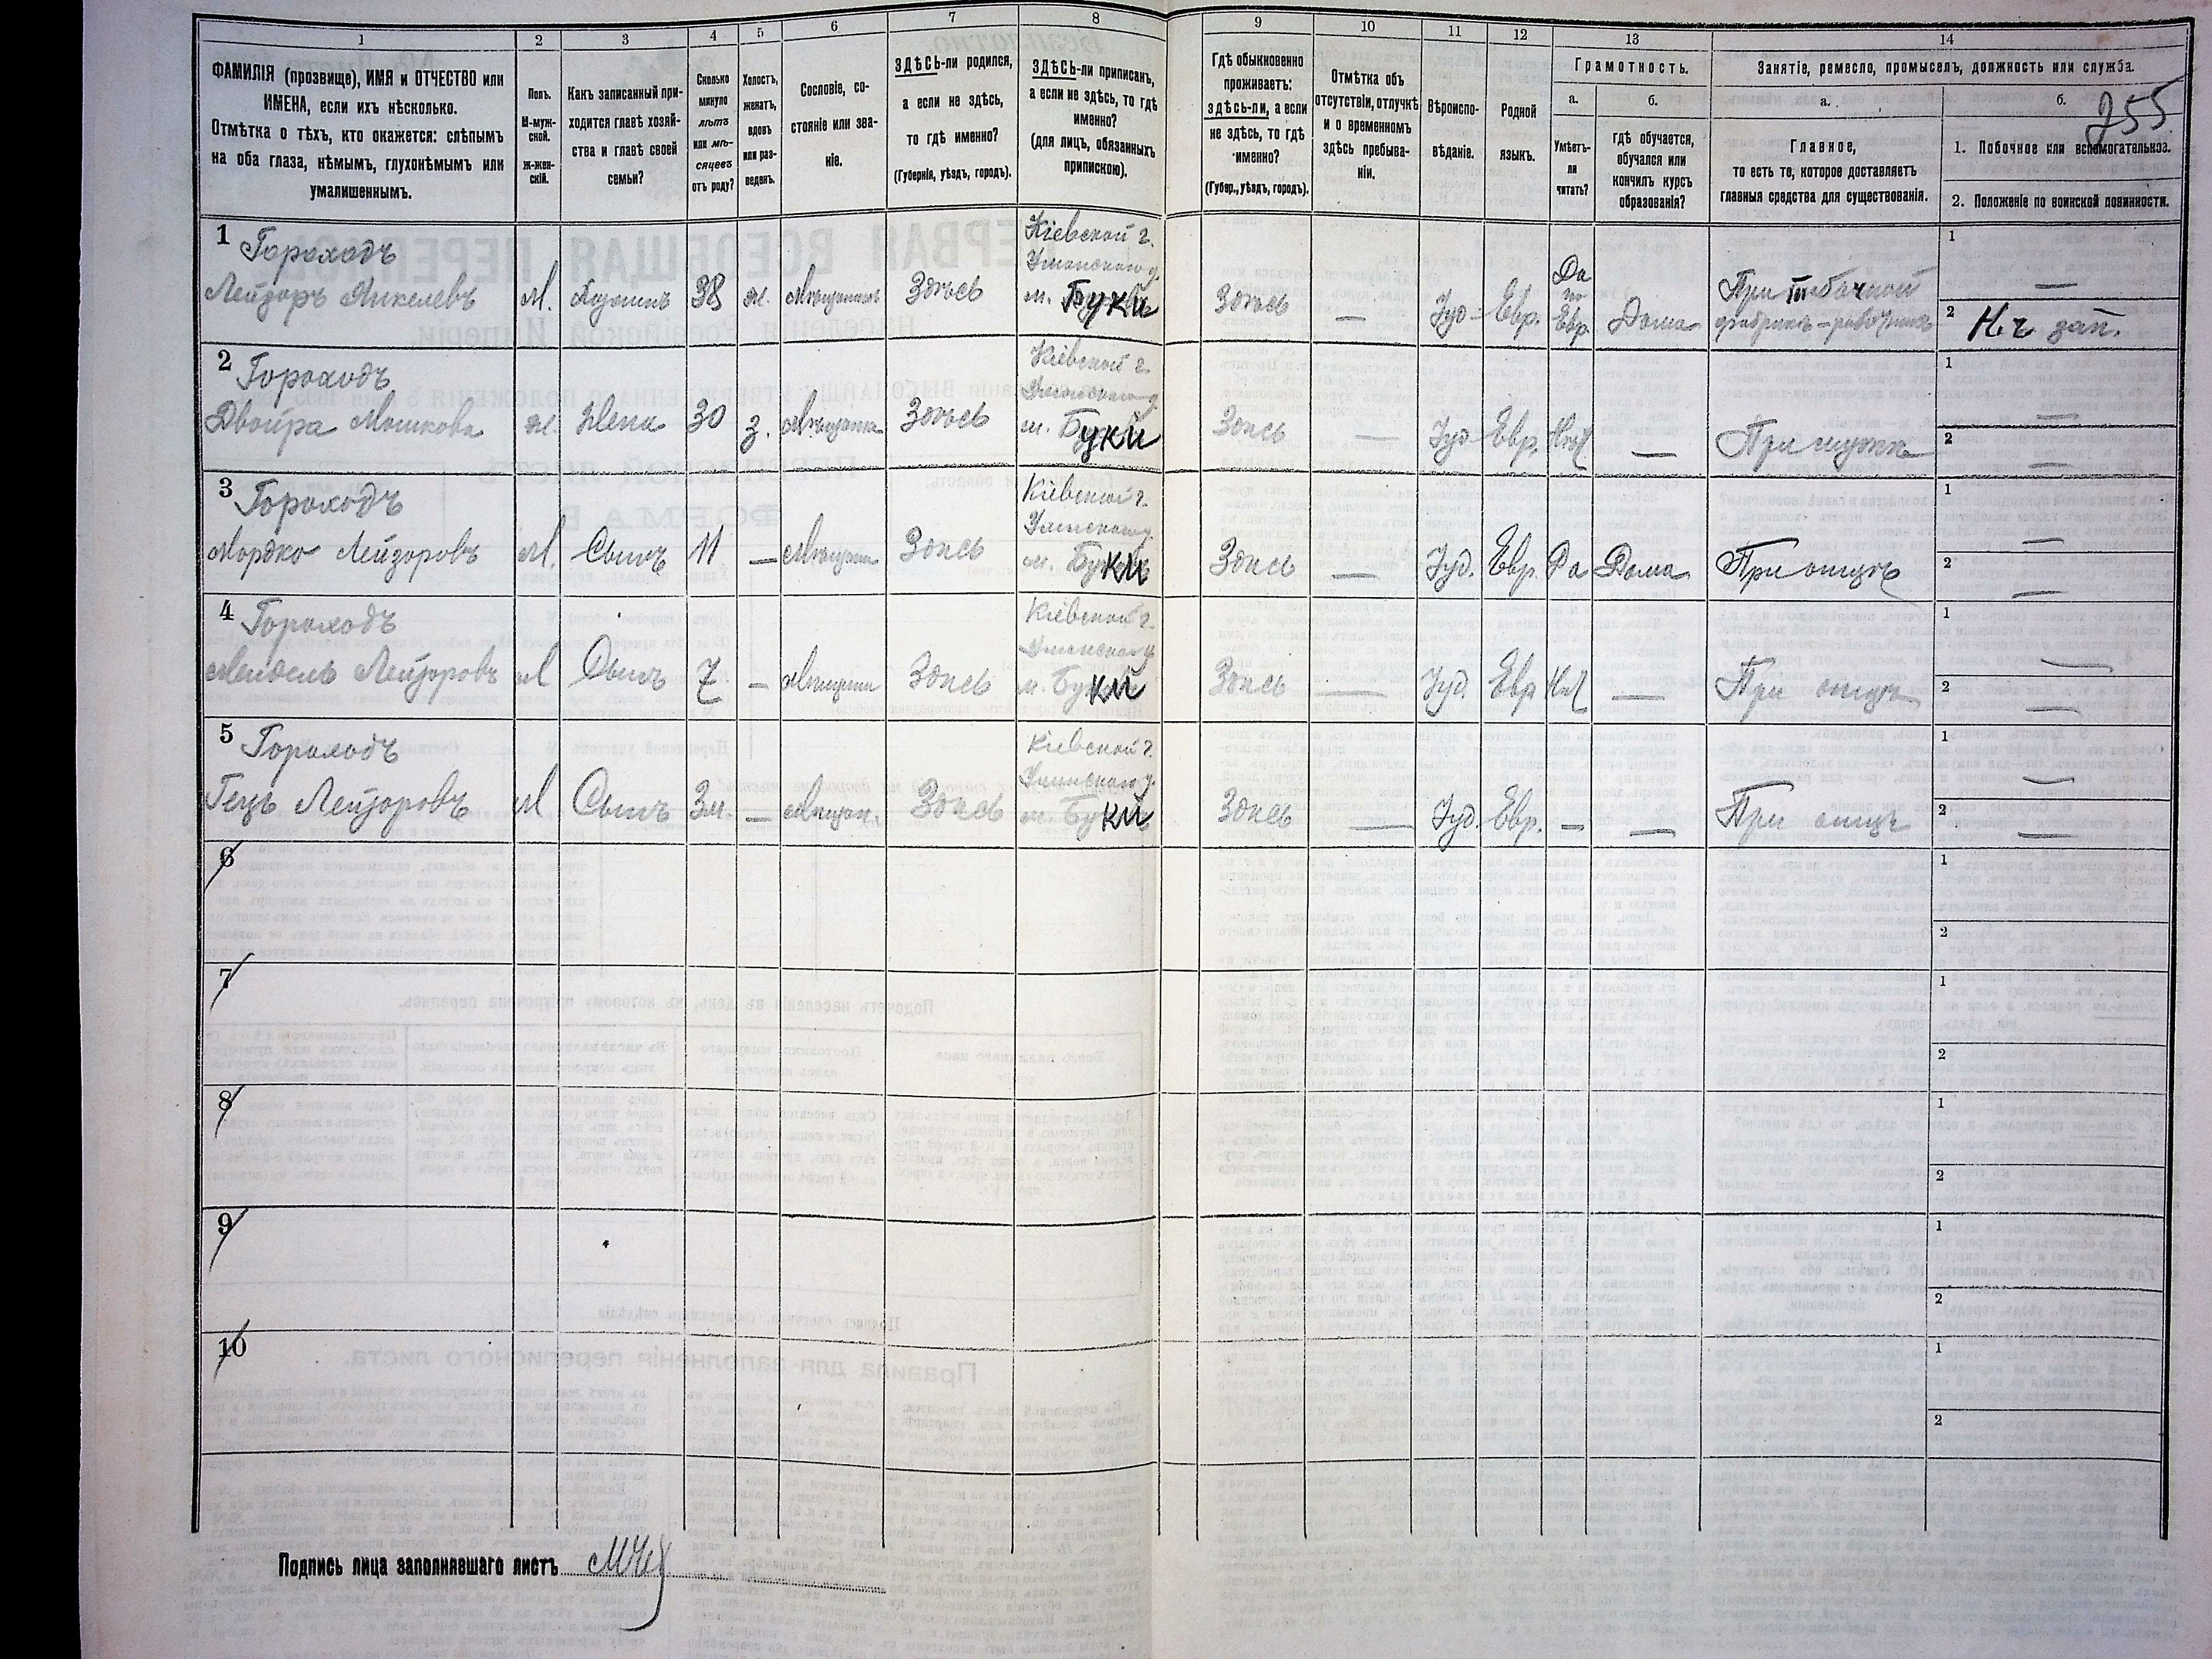 1
2
3
4
5
6
7
8
9
10
11
12
13
14
ФАМИЛІЯ (прозвище), ИМЯ и ОТЧЕСТВО или
ИМЕНА, если ихъ нѣсколько.
Отмѣтка о тѣхъ, кто окажется: слѣпымъ
на оба глаза, нѣмымъ, глухонѣмымъ или
умалишеннымъ.
Полъ.
М-муж-
ской.
ж-жен-
скій.
Какъ записанный при-
ходится главѣ хозяй-
ства и главѣ своей
семьи?
Сколько
минуло
лѣтъ
или мѣ-
сяцевъ
отъ роду?
Холостъ,
женатъ,
вдовъ
или раз-
веденъ.
Сословіе, со-
стояніе или зва-
ніе.
ЗДѢСЬ-ли родился,
а если не здѣсь,
то гдѣ именно?
(Губернія, уѣздъ, городъ).
ЗДѢСЬ-ли приписанъ,
а если не здѣсь, то гдѣ
именно?
(для лицъ, обязанныхъ
припискою).
Гдѣ обыкновенно
проживаетъ:
здѣсь-ли, а если
не здѣсь, то гдѣ
именно?
(Губер., уѣздъ, городъ).
Отмѣтка объ
отсутствіи, отлучкѣ
и о временномъ
здѣсь пребыва-
ніи.
Вѣроиспо-
вѣданіе.
Родной
языкъ.
Грамотность.
а.
б.
Умѣетъ-
ли
читать?
Гдѣ обучается,
обучался или
кончилъ курсъ
образованія?
Занятіе, ремесло, промыселъ, должность или служба.
а.
б.
255
Главное,
то есть то, которое доставляетъ
главныя средства для существованія.
1. Побочное или вспомогательное.
2. Положеніе по воинской повинности.
1
Гороходъ
Лейзоръ Янкелевъ
М.
Хозяинъ
38
ж.
Мѣщанинъ
Здѣсь
Кіевской г.
Уманского у.
м. Буки
Здѣсь
—
Іуд.
Евр.
Да
по
Евр.
Дома
При табачной
фабрикѣ – рабочимъ
1
—
2
Н. ч зап.
2
Гороходъ
Двойра Мошкова
ж.
Жена
30
з.
Мѣщанка
Здѣсь
Кіевской г.
Уманского у.
м. Буки
Здѣсь
—
Іуд.
Евр.
Нѣт
—
При мужѣ
1
—
2
—
3
Гороходъ
Мордко Лейзоровъ
М.
Сынъ
11
—
Мѣщанин
Здѣсь
Кіевской г.
Уманского у.
м. Буки
Здѣсь
—
Іуд.
Евр.
Да
Дома
При отцѣ
1
—
2
—
4
Гороходъ
Мендель Лейзоровъ
М
Сынъ
7
—
Мѣщанин
Здѣсь
Кіевской г.
Уманского у.
м. Буки
Здѣсь
—
Іуд.
Евр
Нѣт
—
При отцѣ
1
—
2
—
5
Гороходъ
Гецъ Лейзоровъ
М
Сынъ
3м.
—
Мѣщан.
Здѣсь
Кіевской г.
Уманского у.
м. Буки
Здѣсь
—
Іуд.
Евр.
—
—
При отцѣ
1
—
2
—
6
1
2
7
1
2
8
1
2
9
1
2
10
1
2
Подпись лица заполнявшаго листъ